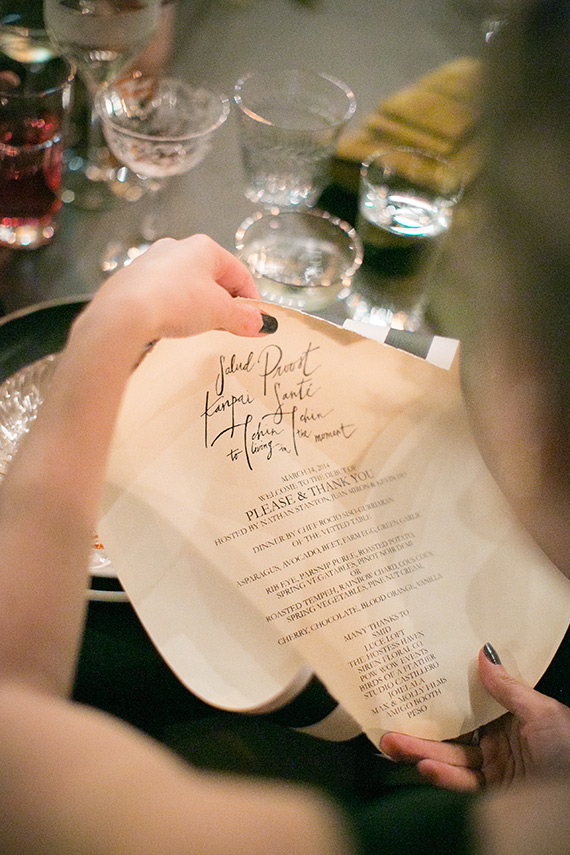 Salud Proost
Kanpai Santé
Tchin Tchin
to living in the moment
MARCH 14, 2014
WELCOME TO THE DEBUT OF
PLEASE & THANK YOU
HOSTED BY NATHAN STANTON, JUAN MIRON & KEVIN HO
DINNER BY CHEF ROCIO SISO-GURRIARAN
OF THE VETTED TABLE
ASPARAGUS, AVOCADO, BEET, FARM EGG, GREEN GARLIC
RIB EYE, PARSNIP PUREE, ROASTED POTATO,
SPRING VEGATABLES, PINOT NOIR DEMI
OR
ROASTED TEMPEH, RAINBOW CHARD, COUS COUS,
SPRING VEGETABLES, PINE NUT CREAM
CHERRY, CHOCOLATE, BLOOD ORANGE, VANILLA
MANY THANKS TO
SMID
LUCE LOFT
THE HOSTESS HAVEN
SIREN FLORAL CO
POW WOW EVENTS
BIRDS OF A FEATHER
STUDIO CASTILLERO
YOIFLALA
MAX & MOLLY FILMS
AMIGO BOOTH
PESO